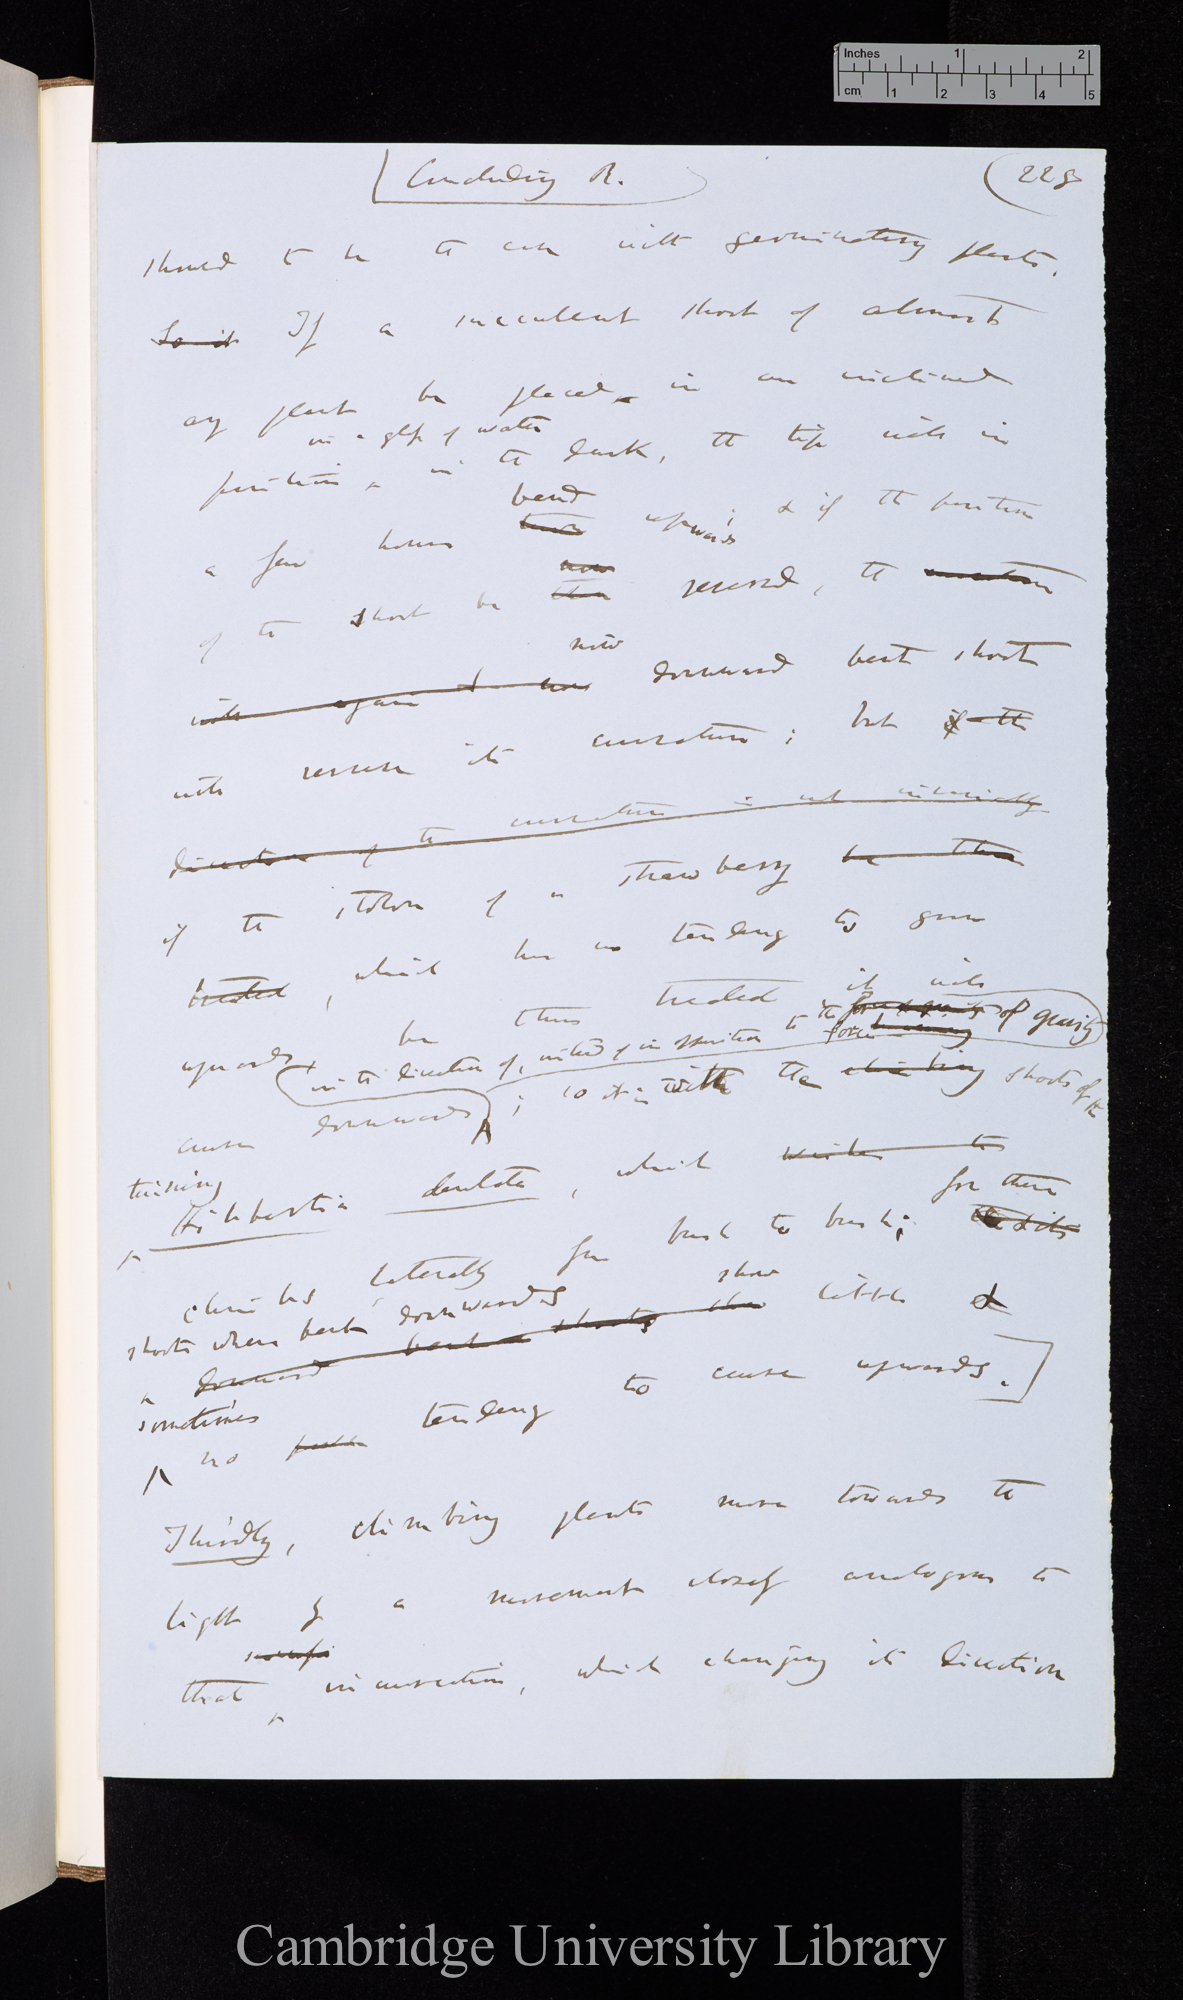 Inches 1 2
cm 1 2 3 4 5
Concluding R. (228
showed to be the case with germinating plants.
So it If a succulent shoot of almost
any plant be placed in an inclined
in a glass of water
position, in the dark, the tip will in
bend
a few hours upwards; & if the position
now
of the shoot be then reversed, the
now
will again downward bent shoot
will reverse its curvature; but if the
direction of the curvature is not
if the stolon of a strawberry be thus
treated, which has no tendency to grow
upwards be thus treated it will
in the direction of, instead of in opposition to the force of gravity
curve downwards; so it is with the climbing shoots of the
twining
Hibbertia dentata, which
climbs laterally from bush to bush; for these
shoots when bent downwards show
downward bent shoots little &
sometimes
no tendency to curve upwards.
Thirdly, climbing plants move towards the
light by a movement closely analogous to
that incurvation, which changing its direction
Cambridge University Library